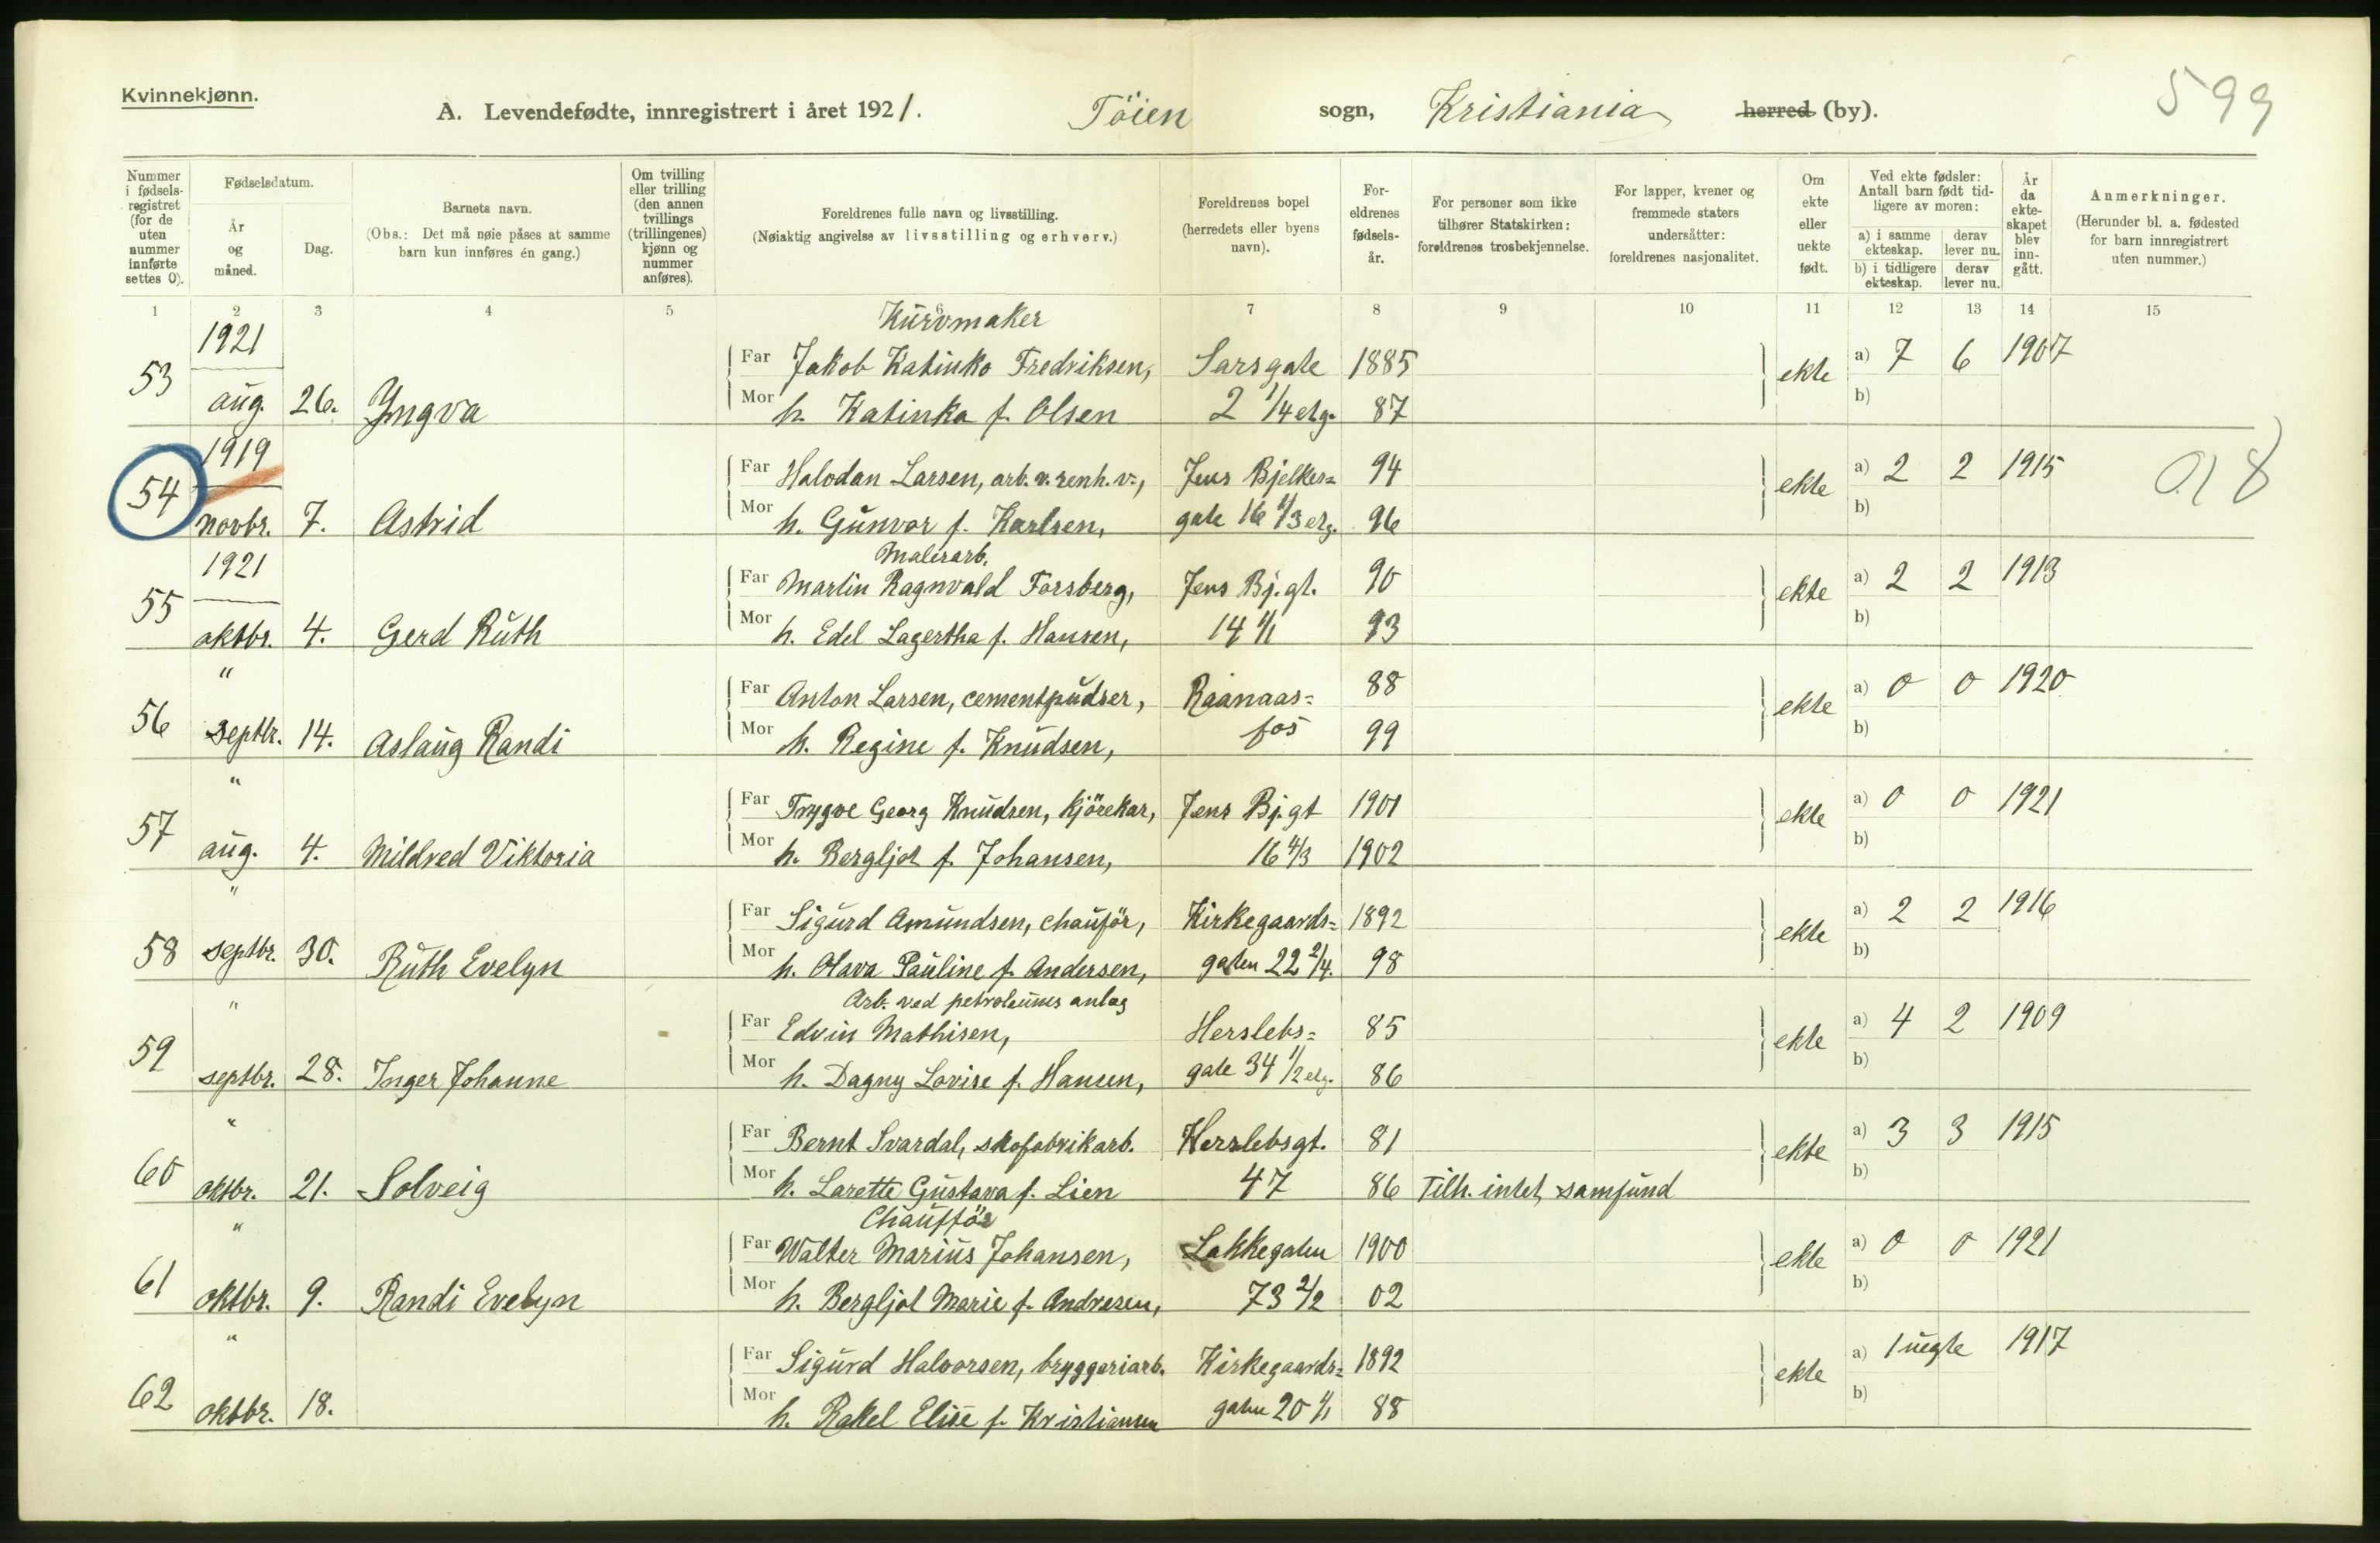 Kvinnekjønn.
A. Levendefødte, innregistrert i året 1921. Töien sogn, Kristiania herred (by). 599
Nummer i fødselsregistret (for de uten nummer innførte settes 0).
Fødselsdatum.
År og måned.
Dag.
Barnets navn.
(Obs.: Det må nøie påses at samme barn kun innføres én gang.)
Om tvilling eller trilling (den annen tvillings (trillingenes) kjønn og nummer anføres).
Foreldrenes fulle navn og livsstilling.
(Nøiaktig angivelse av livsstilling og erhverv.)
Foreldrenes bopel (herredets eller byens navn).
Foreldrenes fødselsår.
For personer som ikke tilhører Statskirken: foreldrenes trosbekjennelse.
For lapper, kvener og fremmede staters undersåtter: foreldrenes nasjonalitet.
Om ekte eller uekte født.
Ved ekte fødsler: Antall barn født tidligere av moren:
a) i samme ekteskap. derav lever nu.
b) i tidligere ekteskap. derav lever nu.
År da ekteskapet blev inngått.
Anmerkninger.
(Herunder bl. a. fødested for barn innregistrert uten nummer.)
1 2 3 4 5 6 7 8 9 10 11 12 13 14 15
1921 Kurvmaker
53 Far Jakob Katinko Fredriksen, Sarsgate 1885 ekte a) 7 6 1907
aug. 26. Yngva Mor h. Katinka f. Olsen 2 1/4 etg. 87 b)
1919
54 Far Halvdan Larsen, arb. v. renh. v., Jens Bjelkes= 94 ekte a) 2 2 1915 018
novbr. 7. Astrid Mor h. Gunvor f. Karlsen, gate 16 1/3 etg. 96 b)
1921 Malerarb.
55 Far Martin Ragnvald Forsberg, Jens Bj. gt. 90 ekte a) 2 2 1913
oktbr. 4. Gerd Ruth Mor h. Edel Lagertha f. Hansen, 14 1/1 93 b)
"
56 Far Anton Larsen, cementpudser, Raanaas= 88 ekte a) 0 0 1920
septbr. 14. Aslaug Randi Mor h. Regine f. Knudsen, fos 99 b)
"
57 Far Trygve Georg Knudsen, kjörekar, Jens Bj. gt 1901 ekte a) 0 0 1921
aug. 4. Mildred Viktoria Mor h. Bergljot f. Johansen, 16 4/3 1902 b)
"
58 Far Sigurd Amundsen, chauför, Kirkegaards= 1892 ekte a) 2 2 1916
septbr. 30. Ruth Evelyn Mor h. Olava Pauline f. Andersen, gaten 22 2/4. 98 b)
" Arb. ved petroleums anlag
59 Far Edvin Mathisen, Herslebs= 85 ekte a) 4 2 1909
septbr. 28. Inger Johanne Mor h. Dagny Lovise f. Hansen, gate 34 1/2 etg. 86 b)
"
60 Far Bernt Svardal, skofabrikarb. Herslebsgt. 81 ekte a) 3 3 1915
oktbr. 21. Solveig Mor h. Larette Gustava f. Lien 47 86 Tilh. intet samfund b)
" Chaufför
61 Far Walter Marius Johansen, Lakkegaten 1900 ekte a) 0 0 1921
oktbr. 9. Randi Evelyn Mor h. Bergljot Marie f. Andresen, 73 2/2 02 b)
"
62 Far Sigurd Halvorsen, bryggeriarb. Kirkegaards= 1892 ekte a) 1 uegte 1917
oktbr. 18. Mor h. Rakel Elise f. Kristiansen gaten 20 1/1 88 b)